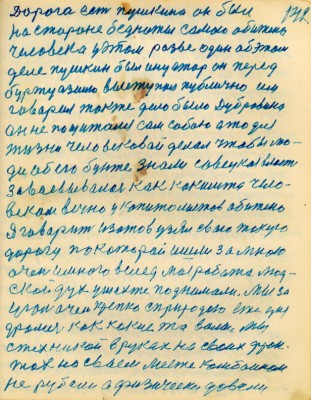 142
Дорога ест пушкина он был
на стороне беднаты самаю обижены
человека уэтом разве один об этом
деле пушкин был он перед
буржуазию выступал публично им
говарил также дело было Дубровска
он не попитал сам собою это дел
жизни человековай делал чтобы лю-
ди об его бунте знали советская власть
завоевывалась как какимта чело-
веком вечно у капиталистов обижены
Я говарит Изотов узял сваю такую
дорогу по которай ишли за мною
очен много вслед моя работа люд-
ской дух ушахте поднимали. Мы за
уголь очен крепко с природаю
как какие та валы. Мы
с техникой в руках на своих
так на сваем месте комбайном
не рубели а физически довали